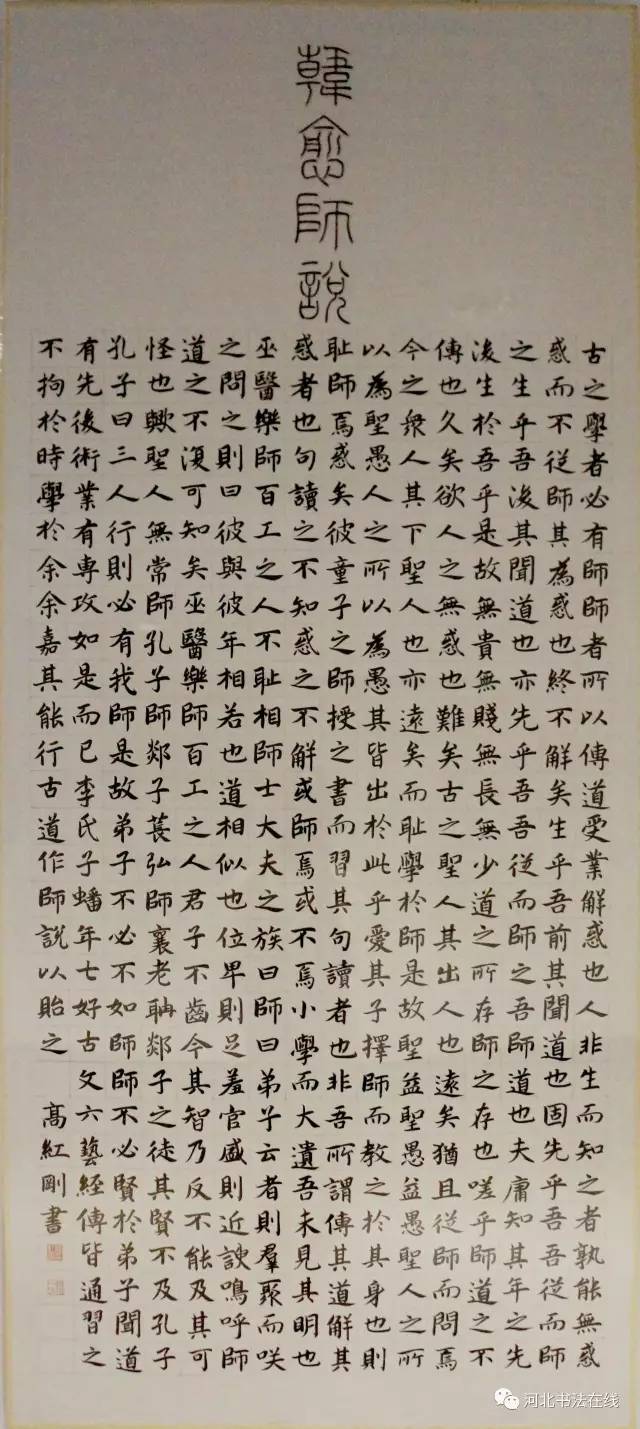 韓愈師說
古之學者必有師師者所以傳道受業解惑也人非生而知之者孰能無惑
惑而不從師其為惑也終不解矣生乎吾前其聞道也固先乎吾吾從而師
之生乎吾後其聞道也亦先乎吾吾從而師之吾師道也夫庸知其年之先
後生於吾乎是故無貴無賤無長無少道之所存師之存也嗟乎師道之不
傳也久矣欲人之無惑也難矣古之聖人其出人也遠矣猶且從師而問焉
今之衆人其下聖人也亦遠矣而耻學於師是故聖益聖愚益愚聖人之所
以為聖愚人之所以為愚其皆出於此乎愛其子擇師而教之於其身也則
耻師焉惑矣彼童子之師授之書而習其句讀者也非吾所謂傳其道解其
惑者也句讀之不知惑之不解或師焉或不焉小學而大遺吾未見其明也
巫醫樂師百工之人不耻相師士大夫之族曰師曰弟子云者則羣聚而咲
之問之則曰彼與彼年相若也道相似也位卑則足羞官盛則近諛嗚呼師
道之不復可知矣巫醫樂師百工之人君子不齒今其智乃反不能及其可
怪也歟聖人無常師孔子師郯子萇弘師襄老聃郯子之徒其賢不及孔子
孔子曰三人行則必有我師是故弟子不必不如師師不必賢於弟子聞道
有先後術業有專攻如是而已李氏子蟠年七好古文六藝經傳皆通習之
不拘於時學於余余嘉其能行古道作師說以貽之
高紅剛書
河北书法在线